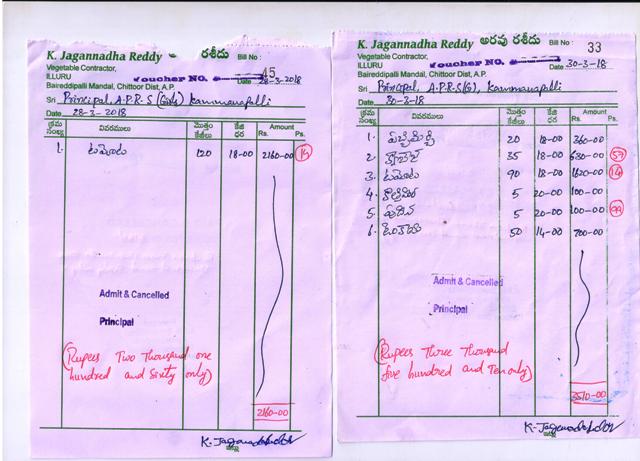 K. Jagannadha Reddy రశీదు Bill No :
Vegetable Contractor,
ILLURU
Voucher NO. 45
Baireddipalli Mandal, Chittoor Dist, A.P. Date 28-3-2018
Sri Principal, A.P.R.S (Girls) Kammanapalli
Date 28-3-2018
క్రమ సంఖ్య వివరములు మొత్తం కేజీలు కేజి ధర Amount Rs. Ps.
1. టమోటా 120 18-00 2160-00 14
Admit & Cancelled
Principal
(Rupees Two Thousand one
hundred and Sixty only)
2160-00
K. Jagannadha Reddy అరవు రశీదు Bill No : 33
Vegetable Contractor,
ILLURU Voucher NO. Date 30-3-18
Baireddipalli Mandal, Chittoor Dist, A.P.
Sri Principal, A.P.R.S(G), Kammanapalli
Date 30-3-18
క్రమ సంఖ్య వివరములు మొత్తం కేజీలు కేజి ధర Amount Rs. Ps.
1. పచ్చిమిర్చి 20 18-00 360-00
2. క్యాబేజి 35 18-00 630-00 57
3. టమోటా 90 18-00 1620-00 14
4. కొత్తిమీర 5 20-00 100-00
5. పుదీన 5 20-00 100-00 99
6. 50 14-00 700-00
Admit & Cancelled
Principal
(Rupees Three Thousand
five hundred and Ten only)
3510-00